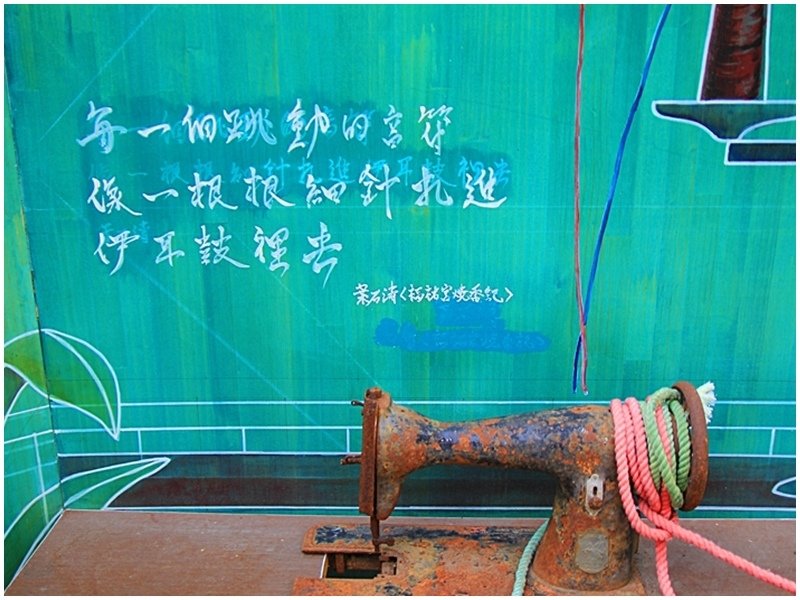 每一個跳動的音符
像一根根細針扎進
伊耳鼓裡去
葉石濤〈福祐宮燒香記〉